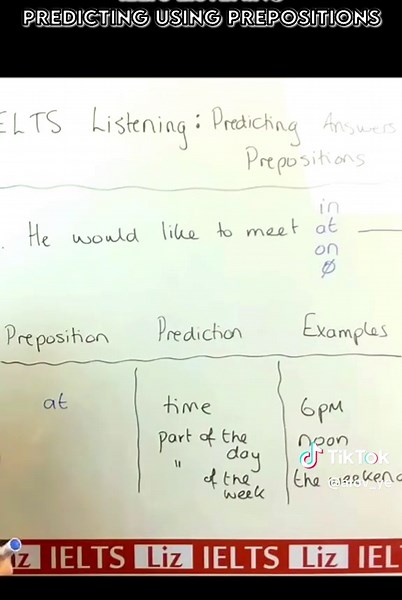 PREDICTING USING PREPOSITIONS
ELTS Listening: Predicting Answers
Prepositions
in
. He would like to meet at
on
Ø
Preposition Prediction Examples
at time 6pm
part of the day noon
" of the week the weekend
TikTok
IZ IELTS Liz IELTS Liz IEL